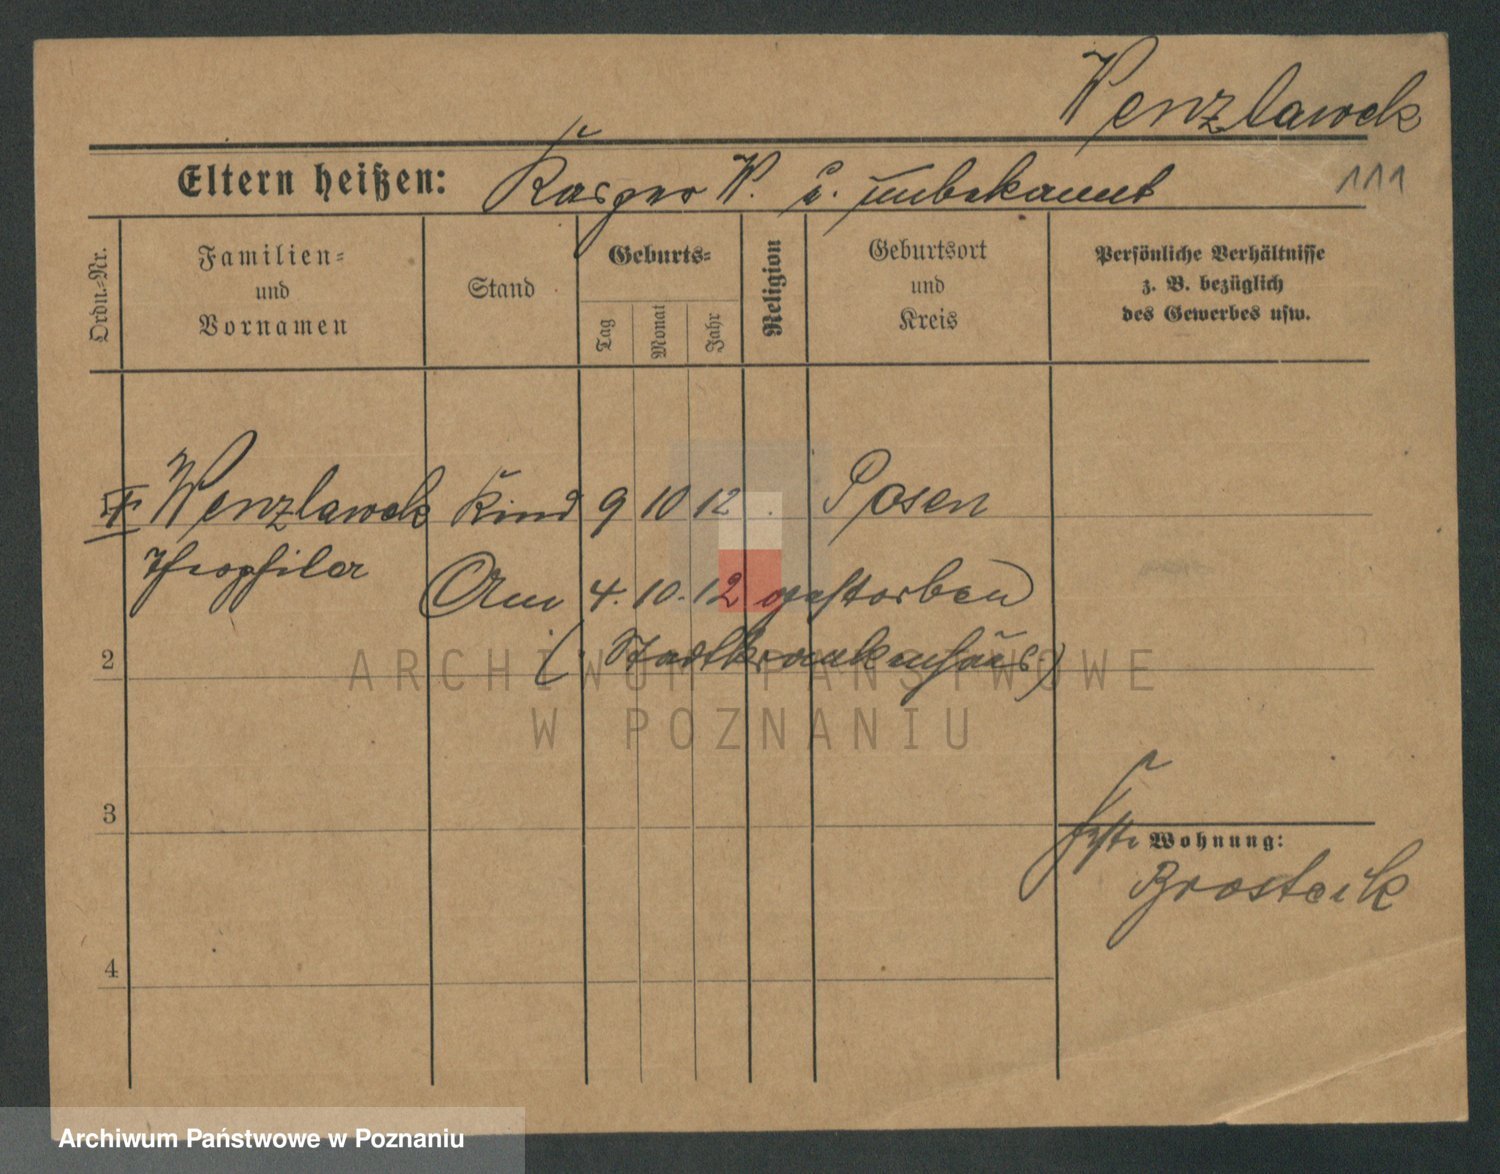 Wenzlawek
111
Eltern heißen: Kasper W. u. unbekannt
Ordn.-Nr.
Familien- und Vornamen
Stand
Geburts-
Tag
Monat
Jahr
Religion
Geburtsort und Kreis
Persönliche Verhältnisse
z. B. bezüglich
des Gewerbes usw.
Wenzlawek Kind 9 10 12 Posen
Theophiler
Am 4. 10. 12 gestorben
2 (Stadtkrankenhaus)
ARCHIWUM PAŃSTWOWE
W POZNANIU
3
Wohnung:
4
Archiwum Państwowe w Poznaniu